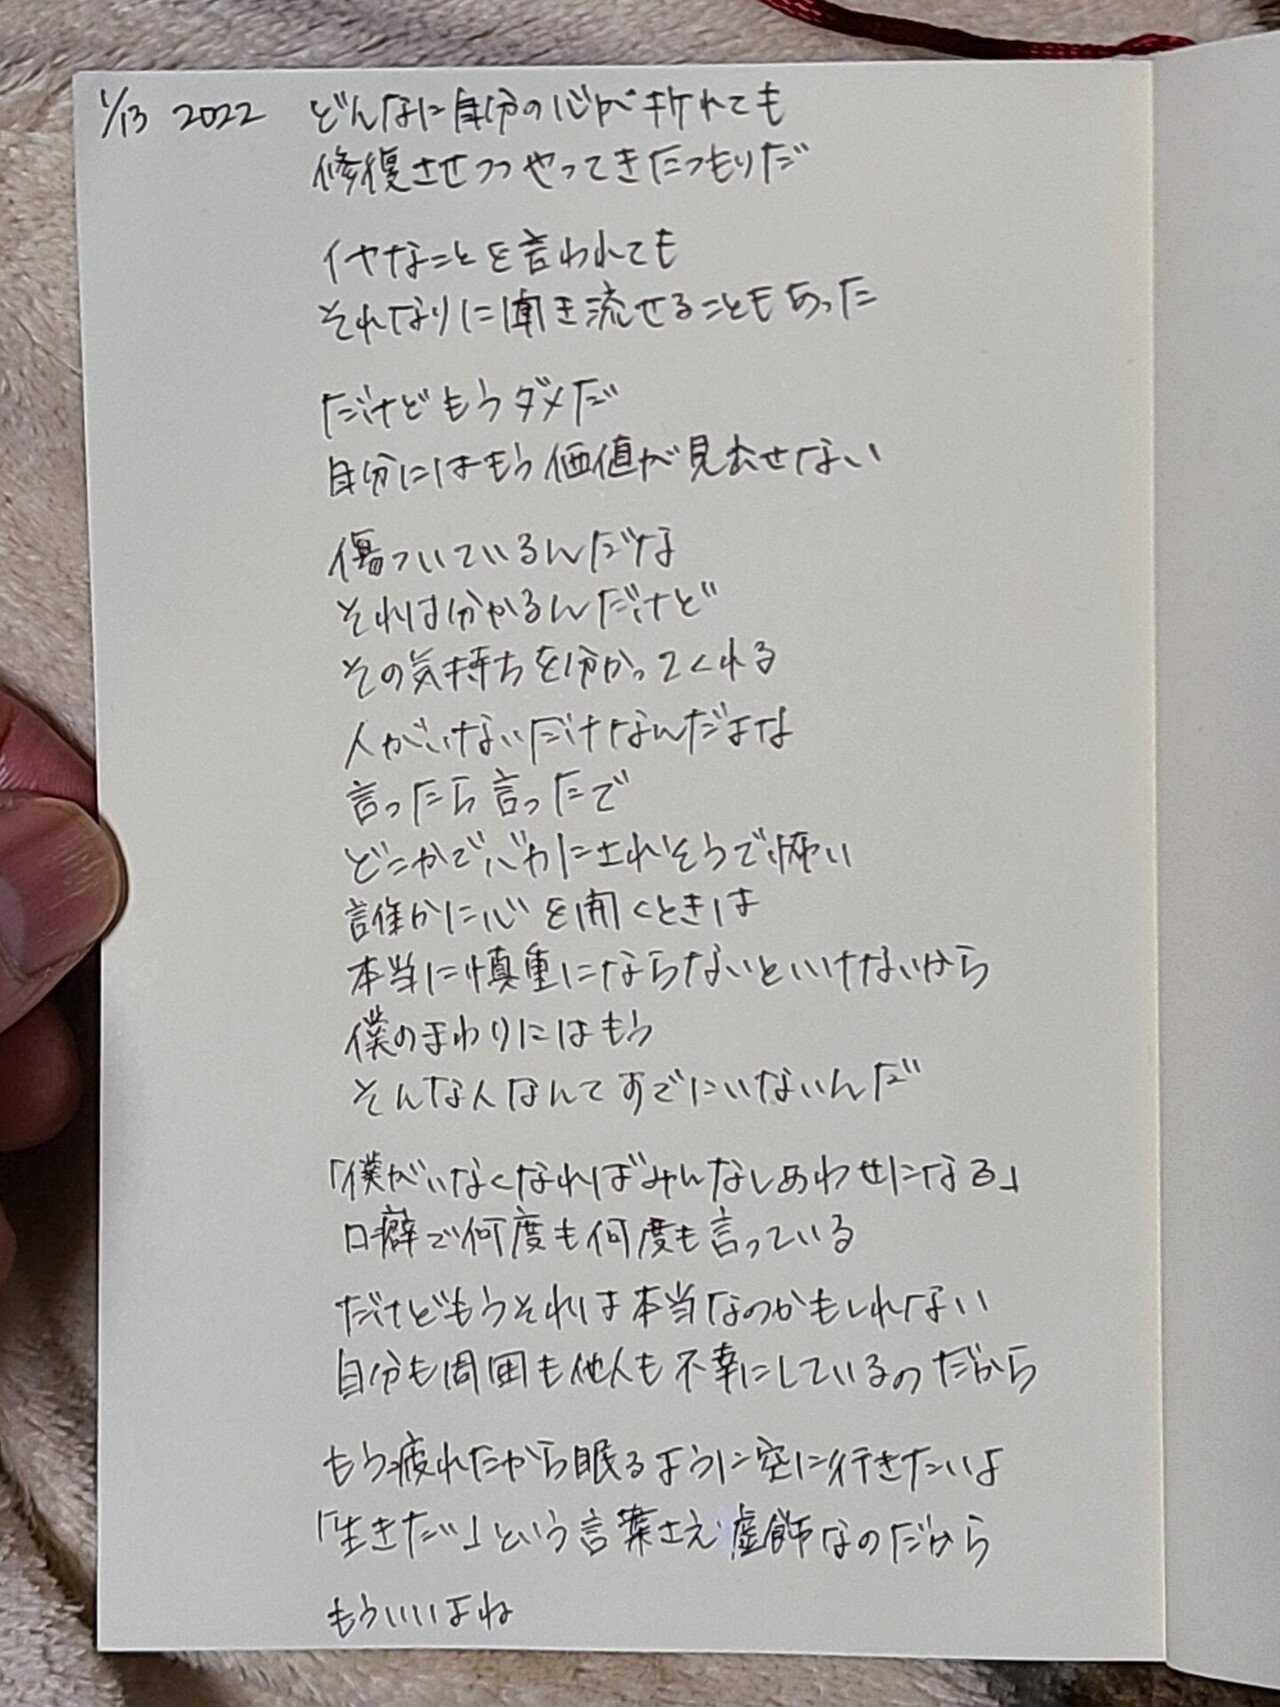 1/13 2022 どんなに自分の心が折れても
修復させつつやってきたつもりだ
イヤなことを言われても
それなりに聞き流せることもあった
だけどもうダメだ
自分にはもう価値が見出せない
傷ついているんだな
それは分かるんだけど
その気持ちを分かってくれる
人がいないだけなんだよな
言ったら言ったで
どこかでバカにされそうで怖い
誰かに心を開くときは
本当に慎重にならないといけないから
僕のまわりにはもう
そんな人なんてすでにいないんだ
「僕がいなくなればみんなしあわせになる」
口癖で何度も何度も言っている
だけどもうそれは本当なのかもしれない
自分も周囲も他人も不幸にしているのだから
もう疲れたから眠るように空に行きたいよ
「生きたい」という言葉さえ虚飾なのだから
もういいよね